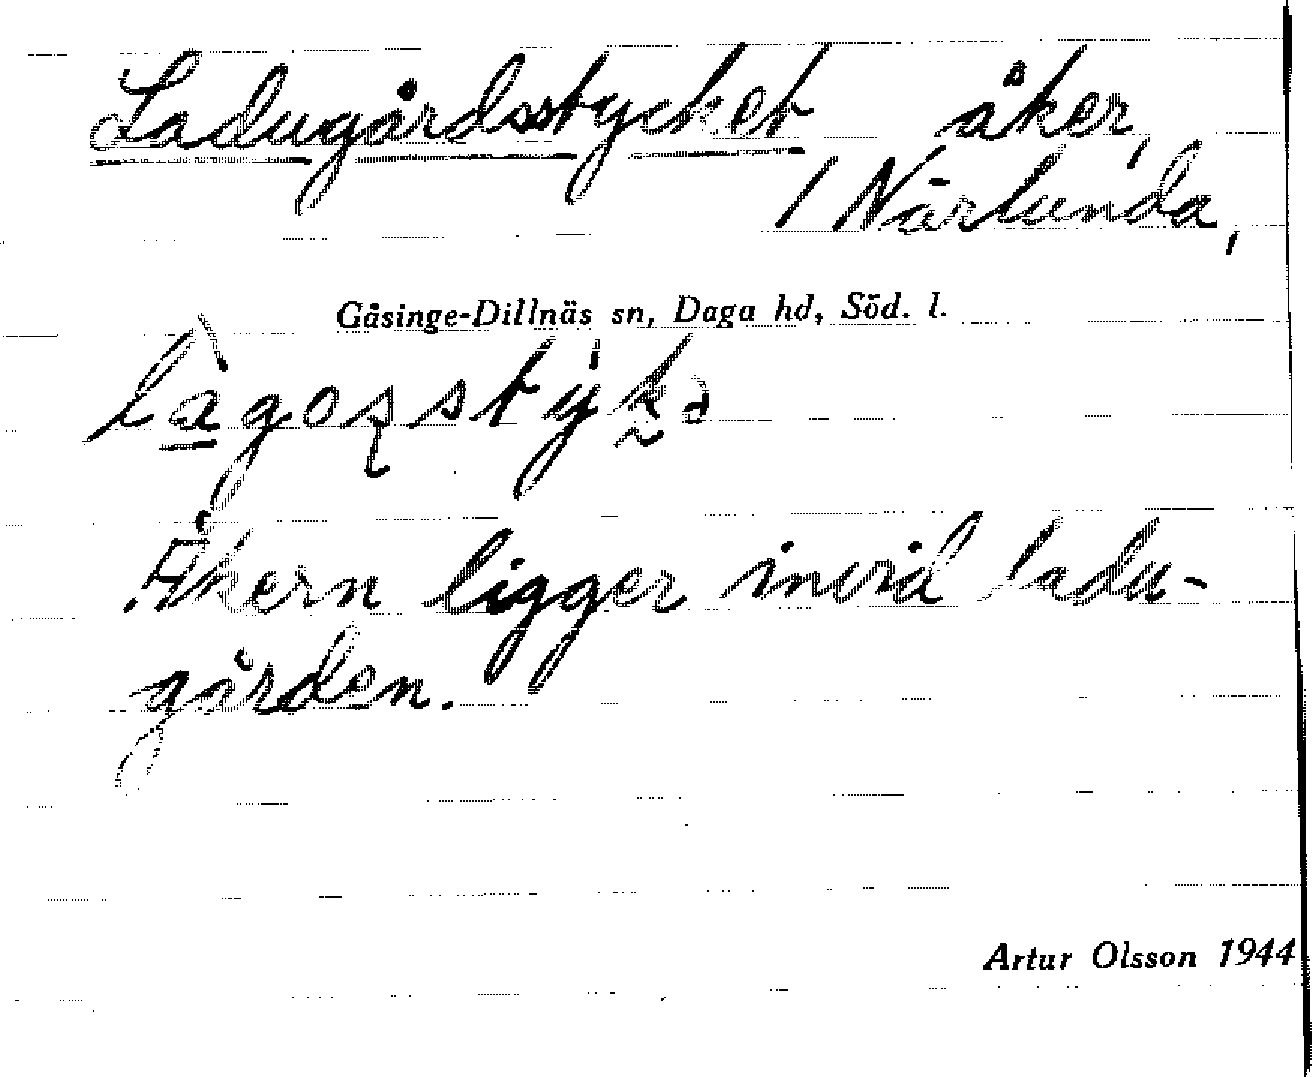 Ladugårdsstycket åker,
/ Närlunda,
Gåsinge-Dillnäs sn, Daga hd, Söd. l.
Åkern ligger invid ladu-
gården.
Artur Olsson 1944